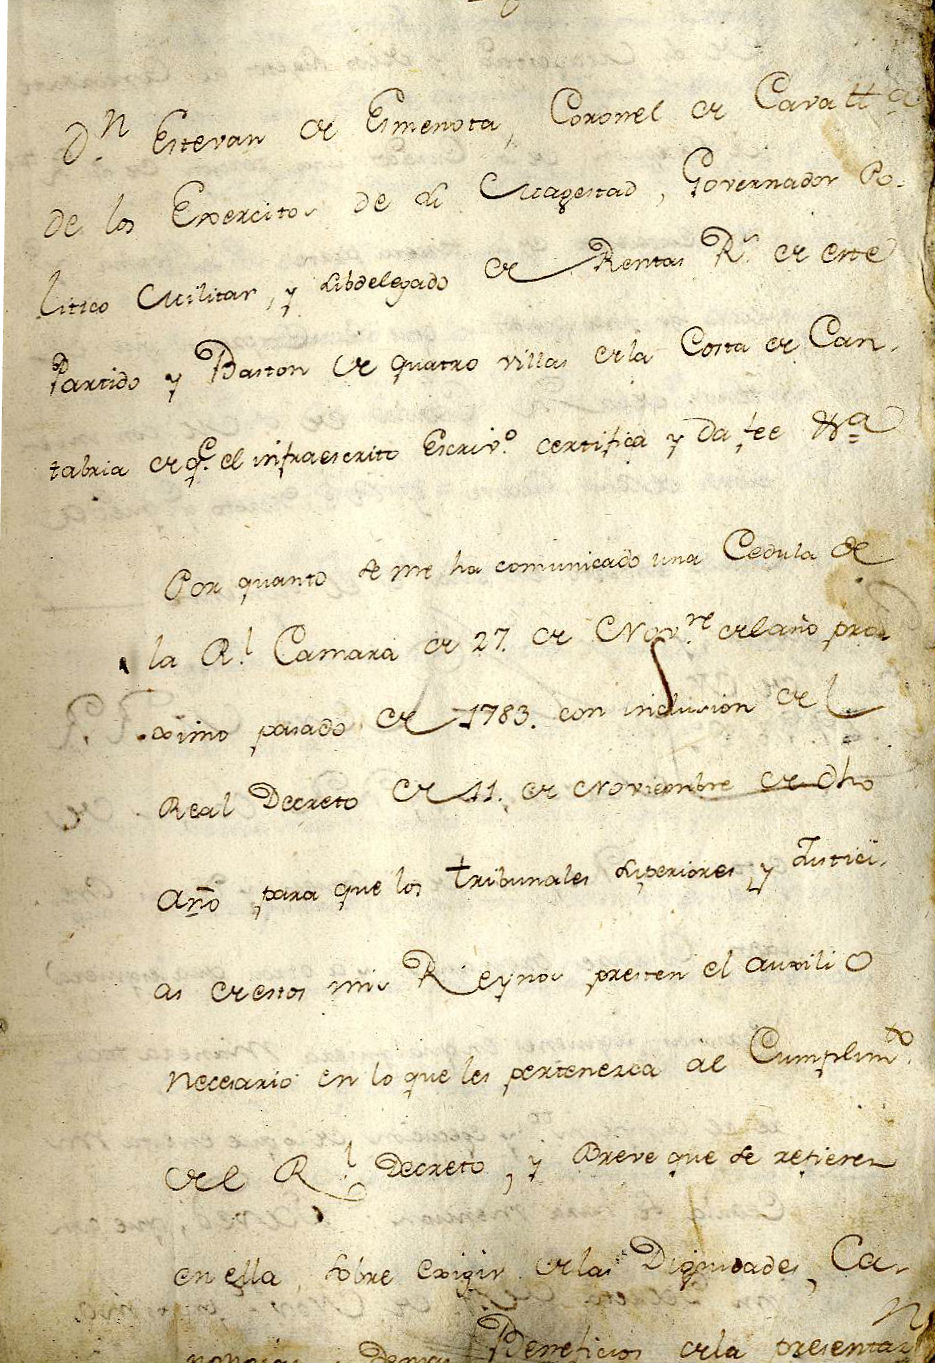 Dn. Estevan de Esmenota, Coronel de Cavallª
de los Exercitos de S. Magestad, Governador Po-
litico Militar, y Subdelegado de Rentas Rs. de este
Partido y Baston de quatro villas de la Costa de Can-
tabria de q.e el infraescrito Escrivº certifica y da fee &ª
Por quanto se me ha comunicado una Cedula de
la R.l Camara de 27. de Novre del año pro-
ximo pasado de 1783. con inclusion del
Real Decreto de 11. de Noviembre de dho
Año para que los tribunales Superiores, y Justici-
as de estos mis Reynos presten el auxilio
Necesario en lo que les pertenezca al Cumplimto.
del R.l Decreto, y Breve que se refieren
en ella, sobre exigir de las Dignidades, Ca-
nongias, y Demas Beneficios de la presentazn